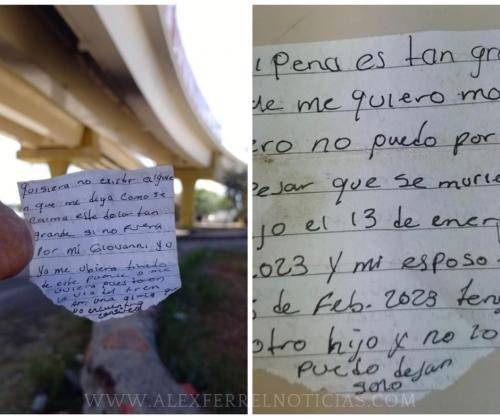 quisiera no existir alguie
n que me diga como se
calma este dolor tan
grande si no fuera
Por mi Giovanni, yo
ya me ubiera tirado
de este Puente o me
ubiera puesto en
la via del tren
una alma que
no encuentra
i pena es tan gra
de me quiero mo
ero no puedo por
pesar que se murie
jo el 13 de ener
2023 y mi esposo
de Feb. 2023 ten
otro hijo y no lo
puedo dejan
solo
WWW.ALEXFERRELNOTICIAS.COM